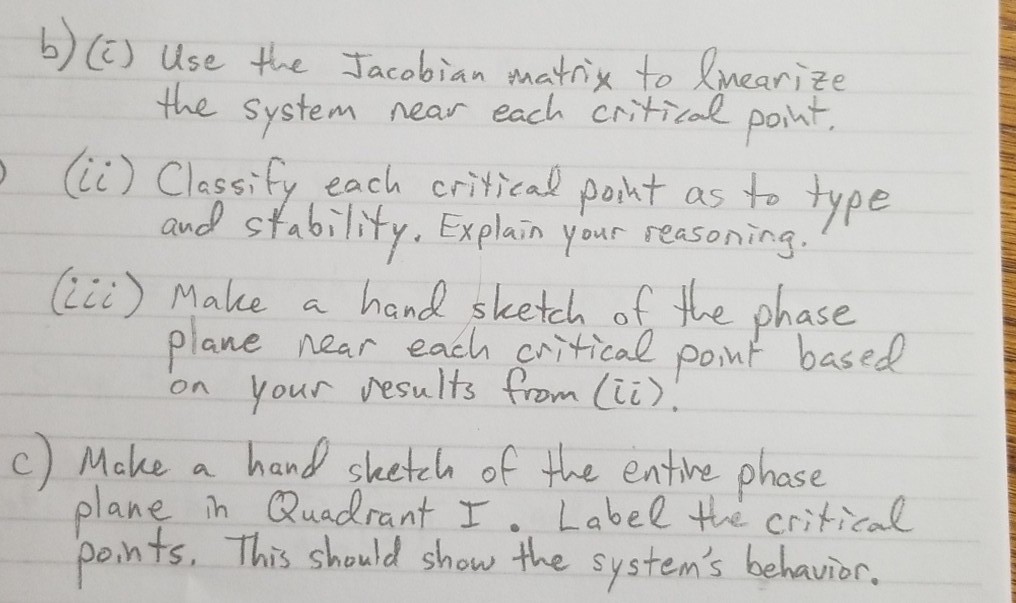 b) (i) Use the Jacobian matrix to linearize
the system near each critical point.
(ii) Classify each critical point as to type
and stability. Explain your reasoning.
(iii) Make a hand sketch of the phase
plane near each critical point based
on your results from (ii).
c) Make a hand sketch of the entire phase
plane in Quadrant I. Label the critical
points. This should show the system's behavior.